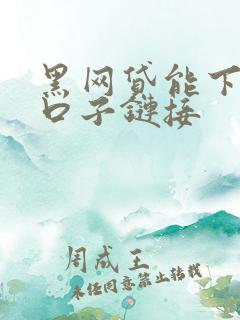 黑网贷能下
口子链接
周成王
未经同意禁止转载